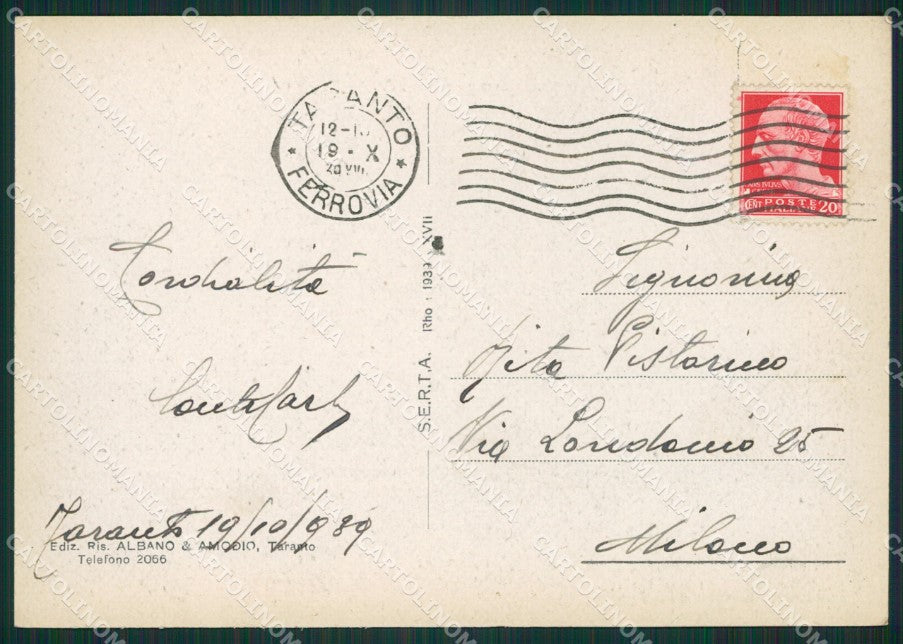 TARANTO
19 · X
FERROVIA
POSTE
ITALIANE
CENT 20
Cordialità
Taranto 19/10/939
Ediz. Ris. ALBANO & AMODIO, Taranto
Telefono 2066
S.E.R.T.A. Rho 1939 XVII
Signorina
Rita Pistorino
Via Londonio 25
Milano
CARTOLINOMANIA